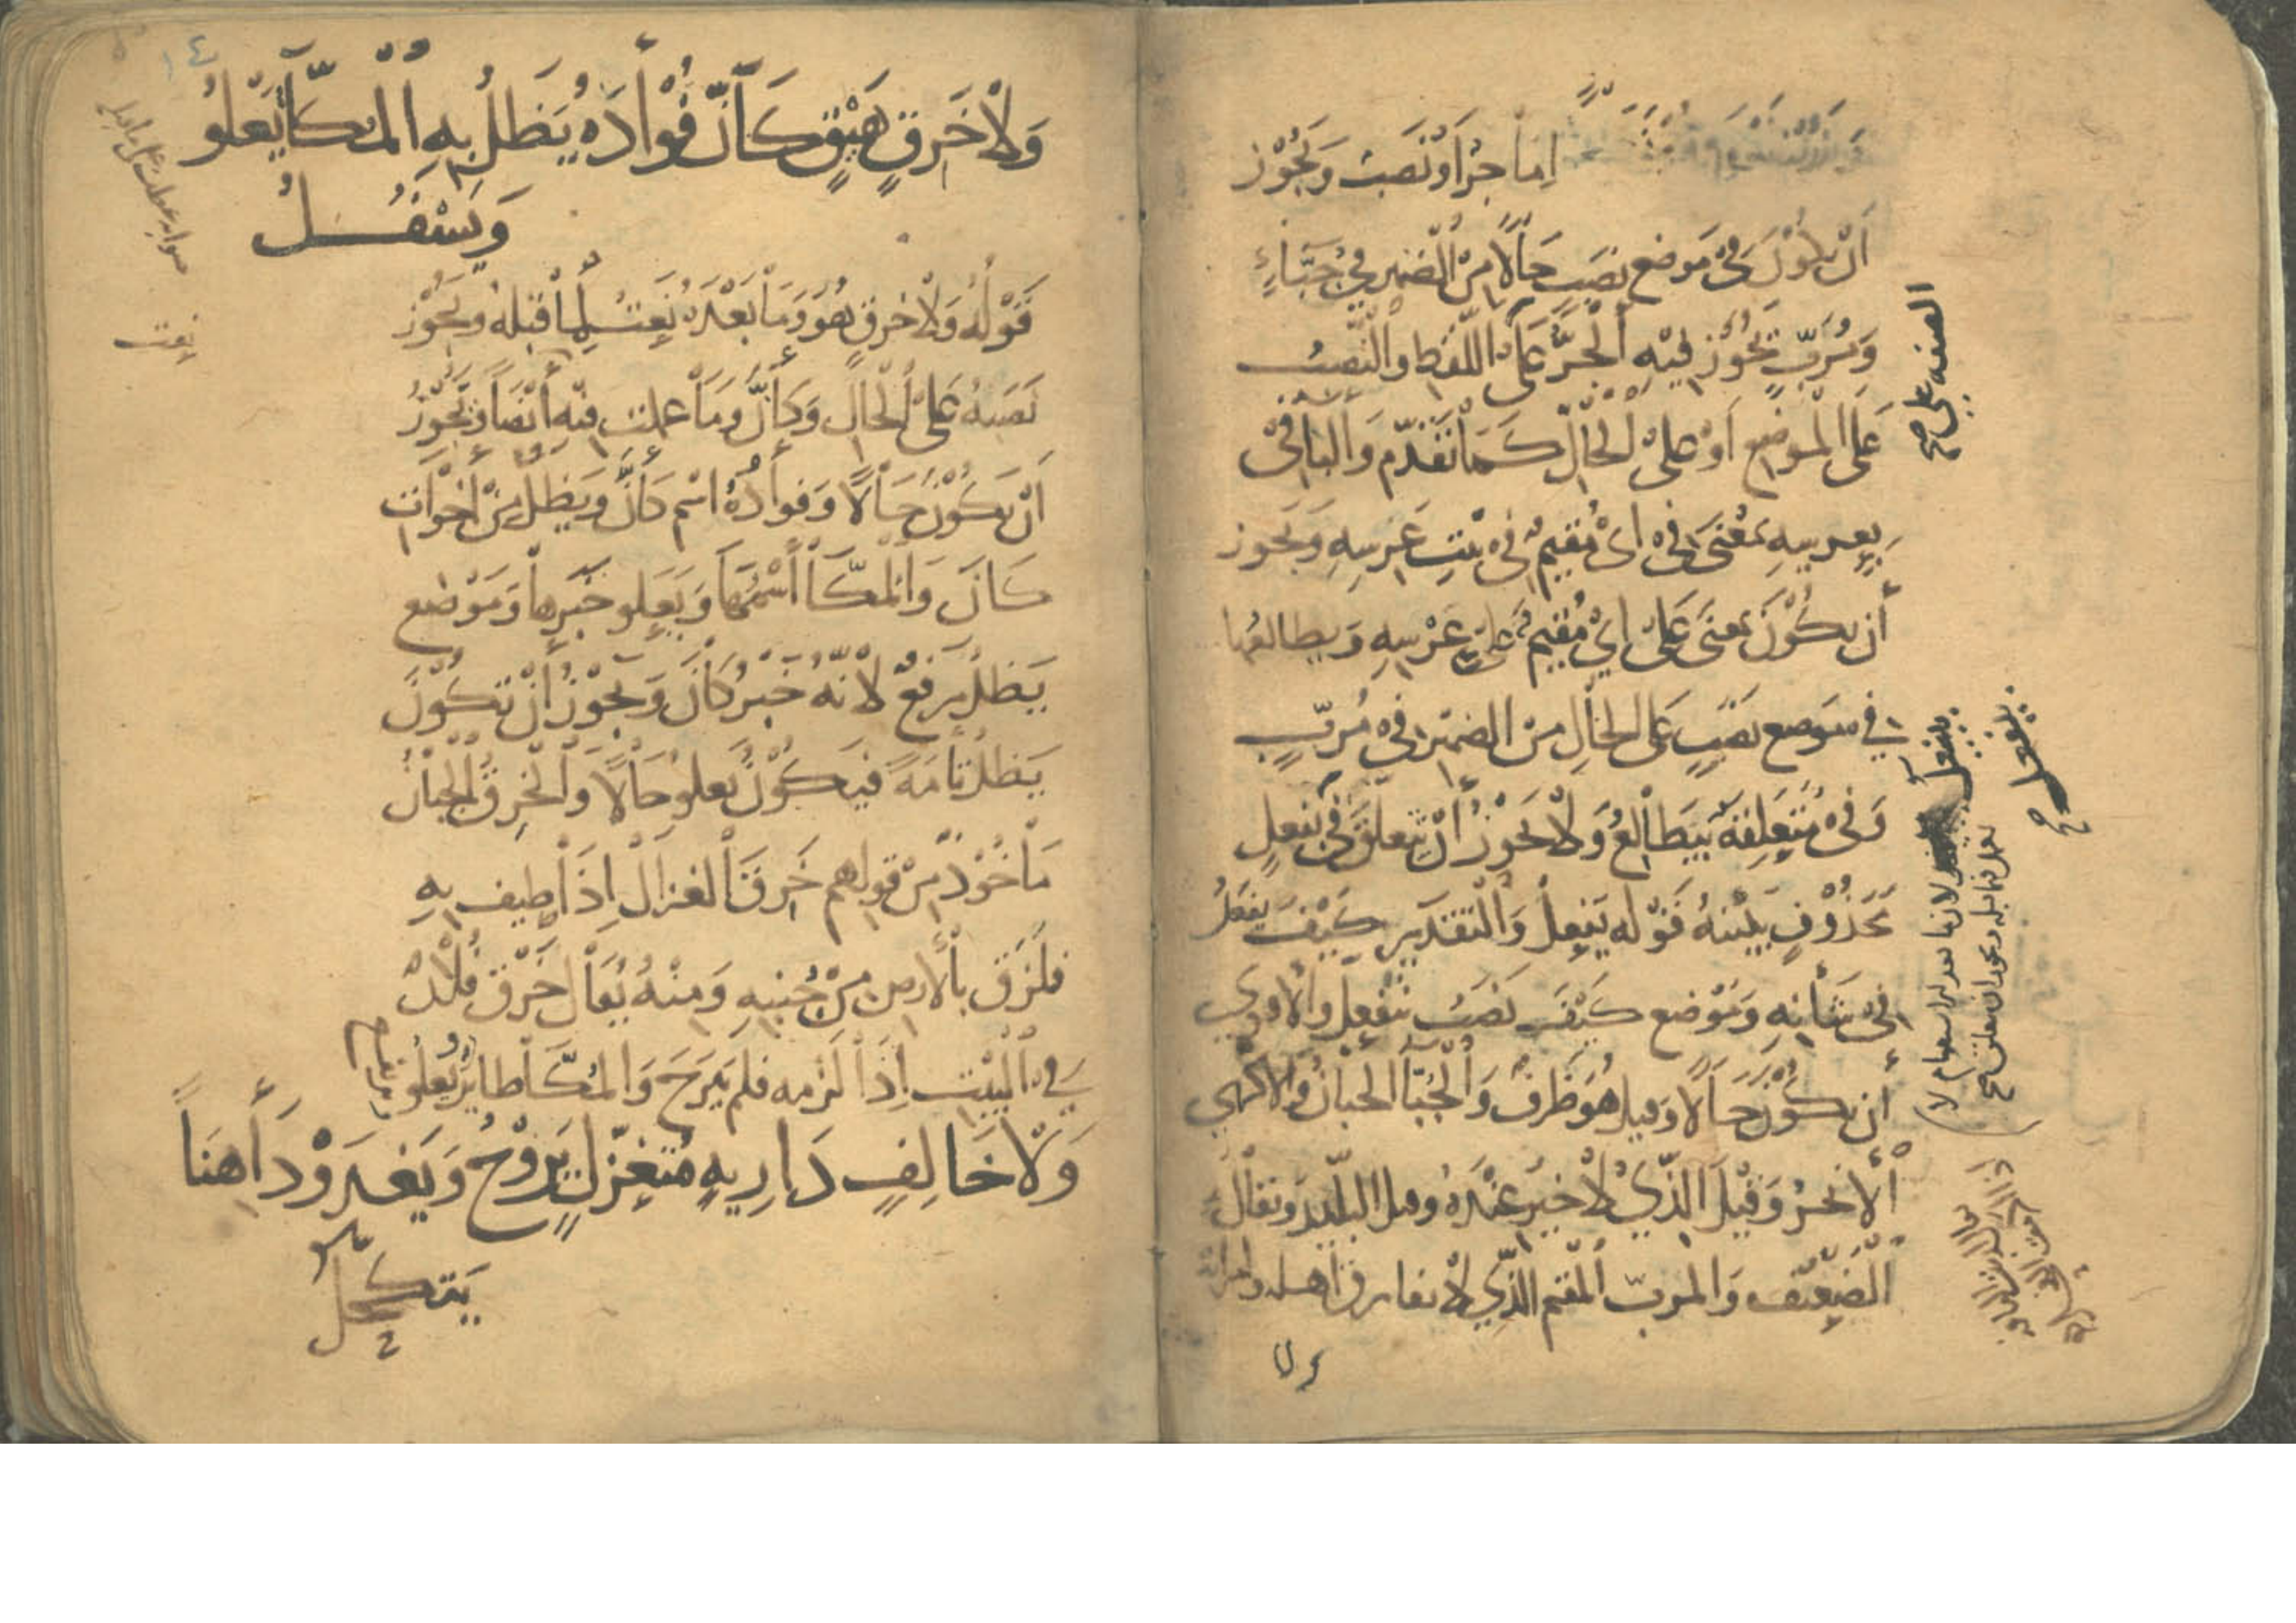 إما جر أو نصب ويجوز
أن يكون في موضع نصب حالا من الضمير في جباء
ومرب يجوز فيه الجر على اللفظ والنصب
على الموضع أو على الحال كما تقدم والبا في
بعرسه بمعنى في أي مقيم في بيت عرسه ويجوز
أن يكون بمعنى على أي مقيم على عرسه ويطالعها
في موضع نصب على الحال من الضمير في مرب
وفي متعلقة بيطالع ولا يجوز أن يتعلق في بفعل
محذوف يبينه قوله يفعل والتقدير كيف يفعل
في شأنه وموضع كيف نصب بيفعل والأولى
أن يكون حالا وقيل هو ظرف والجبأ الجبان والأكهى
الأبخر وقيل الذي لا خير عنده وقيل البليد ويقال
الضعيف والمرب المقيم الذي لا يفارق أهله وامرأته
الصفه على صح
بيفعل صح
ولا خرق هيق كأن فؤاده يظل به المكا يعلو
ويسفل
قوله ولا خرق هو وما بعده نعت لما قبله ويجوز
نصبه على الحال وكأن وما عملت فيه أيضا يجوز
أن يكون حالا وفؤاده اسم كأن ويظل من أخوات
كان والمكا اسمها ويعلو خبرها وموضع
يظل رفع لأنه خبر كأن ويجوز أن تكون
يظل تامة فيكون يعلو حالا والخرق الجبان
مأخوذ من قولهم خرق الغزال إذا أطيف به
فلزق بالأرض من جبنه ومنه يقال خرق فلان
في البيت إذا لزمه فلم يبرح والمكا طاير يعلو
ولا خالف داريه متغزل يروح ويغدو داهنا
يتكحل
١٤